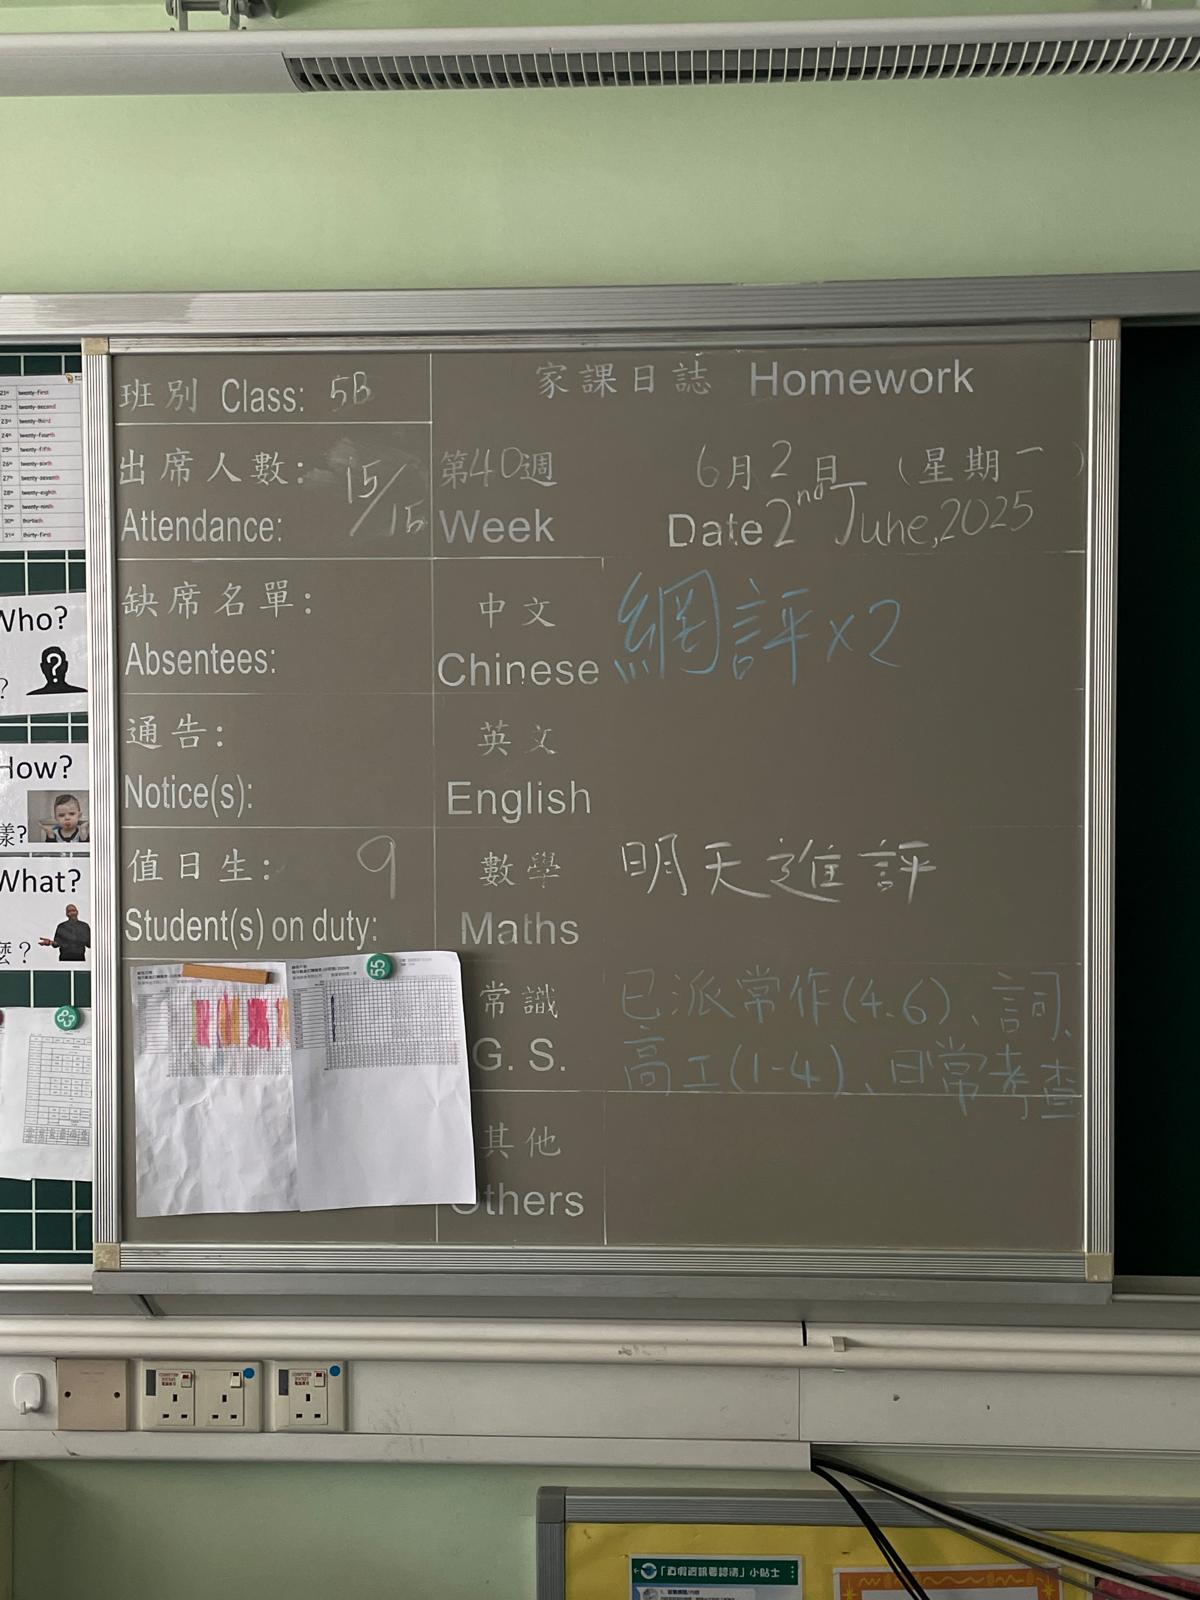 班別 Class: 5B
家課日誌 Homework
出席人數: 15/15
Attendance:
第40週
Week
6月2日 (星期一)
Date 2nd June, 2025
缺席名單:
Absentees:
中文
Chinese
網評x2
通告:
Notice(s):
英文
English
值日生: 9
Student(s) on duty:
數學
Maths
明天進評
常識
G. S.
已派常作(4.6)、詞、
高工(1-4)、日常考查
其他
Others
55
21st twenty-first
22nd twenty-second
23rd twenty-third
24th twenty-fourth
25th twenty-fifth
26th twenty-sixth
27th twenty-seventh
28th twenty-eighth
29th twenty-ninth
30th thirtieth
31st thirty-first
Who?
?
How?
樣?
What?
麼?
「真假資訊要認清」小貼士